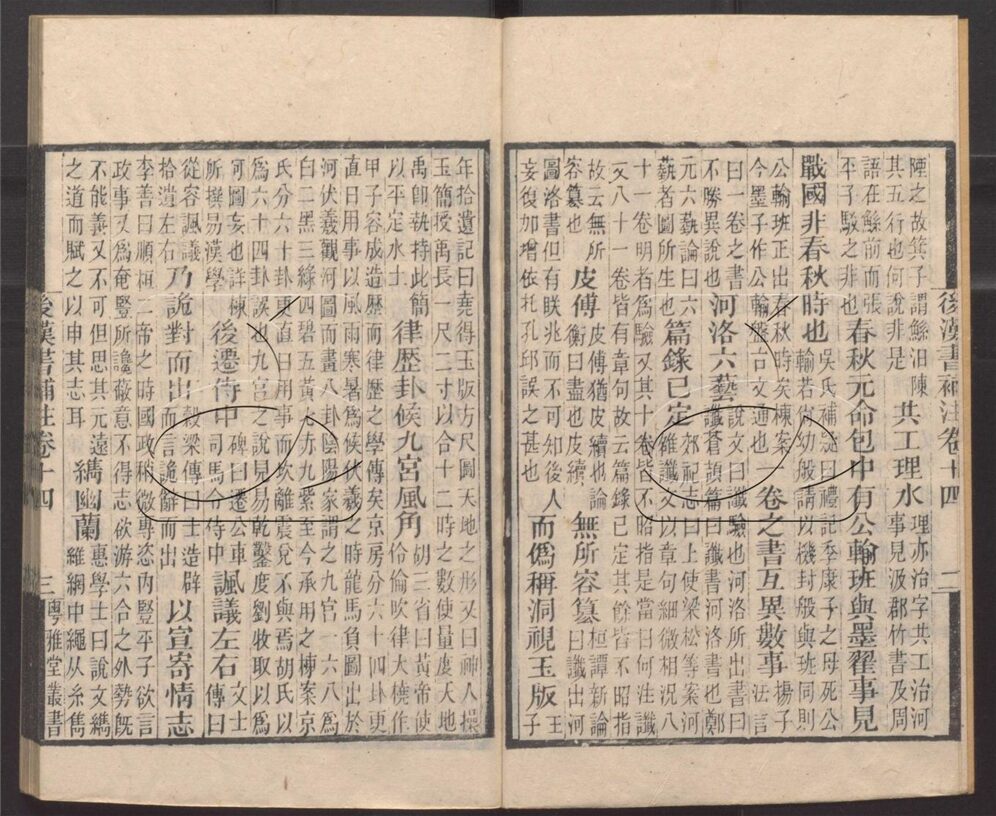 後漢書補注卷十四 二
陻之故箕子謂鯀汨陳其五行也何說非是共工理水理亦治字共工治河事見汲郡竹書及周
語在鯀前而張平子駮之非也春秋元命包中有公輸班與墨翟事見
戰國非春秋時也吳氏補䟽曰禮記季康子之母死公輸若方幼般請以機封般與班同則
公輸班正出春秋時矣棟案今墨子作公輸盤古文通也一卷之書互異數事揚子法言
曰一卷之書不勝異說也河洛六藝說文曰讖驗也河洛所出書曰讖蒼頡篇曰讖書河洛書也鄭
元六藝論曰六藝者圖所生也篇錄已定郊祀志曰上使梁松等案河雒讖文以章句細微相況八
十一卷明者爲驗又其十卷皆不昭指是當日何注讖又八十一卷皆有章句故云篇錄已定其餘皆不昭指
故云無所容篡也皮傅皮傅猶皮續也論衡曰盡也皮續無所容篡桓譚新論曰讖出河
圖洛書但有眹兆而不可知後人妄復加增依托孔邱誤之甚也而僞稱洞視玉版王子
年拾遺記曰堯得玉版方尺圖天地之形又曰神人操玉簡授禹長一尺二寸以合十二時之數使量度天地
禹卽執持此簡以平定水土律歷卦候九宮風角胡三省曰黃帝使伶倫吹律大橈作
甲子容成造歷而律歷之學傳矣京房分六十四卦更直日用事以風雨寒暑爲候伏羲之時龍馬負圖出於
河伏羲觀河圖而畫八卦陰陽家謂之九宮一六八爲白二黑三綠四碧五黃七赤九紫至今承用之棟案京
氏分六十卦更直日用事而坎離震兌不與焉胡氏以爲六十四卦誤也九宮之說見易乾鑿度劉牧取以爲
河圖妄也詳棟所撰易漢學後遷侍中碑曰遷公車司馬令侍中諷議左右文士傳曰
從容諷議拾遺左右乃詭對而出穀梁傳曰士造辟而言詭辭而出以宣寄情志
李善曰順桓二帝之時國政稍微專恣內豎平子欲言政事又爲奄豎所讒蔽意不得志欲游六合之外勢旣
不能義又不可但思其元遠之道而賦之以申其志耳纗幽蘭惠學士曰說文纗維網中繩从糸雟
後漢書補注卷十四 三 粵雅堂叢書